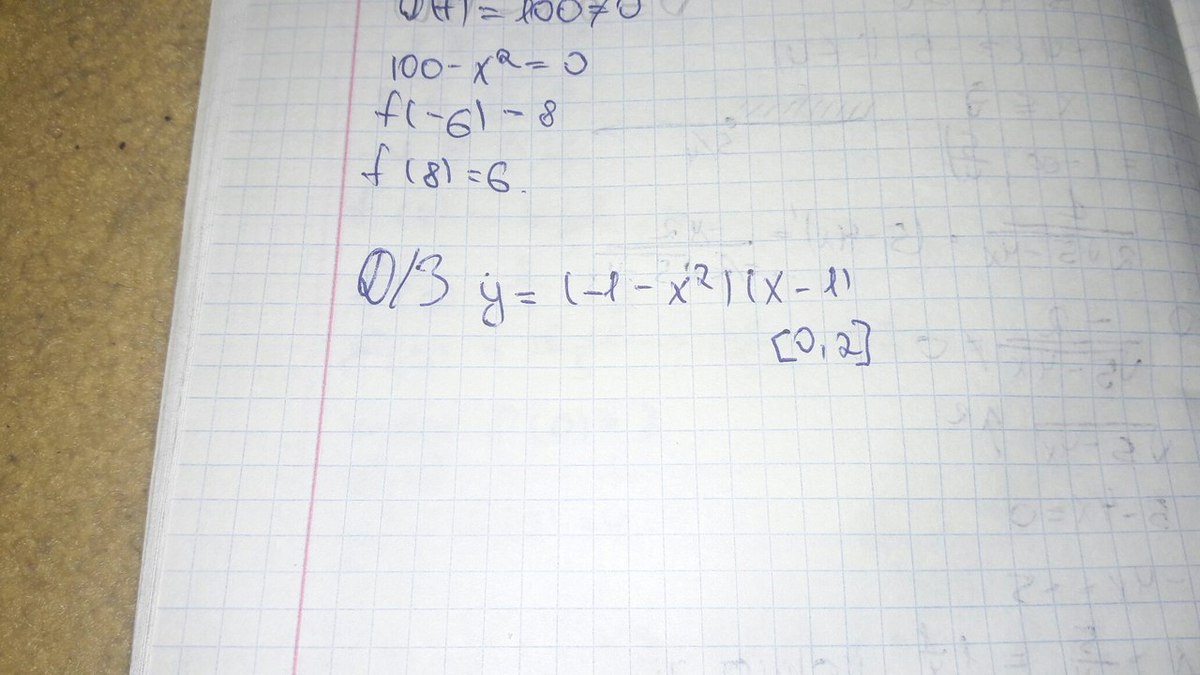 D(f) = 100 ≠ 0
100 - x² = 0
f(-6) - 8
f(8) = 6.
D/З y = (-1 - x²)(x - 1)
[0, 2]